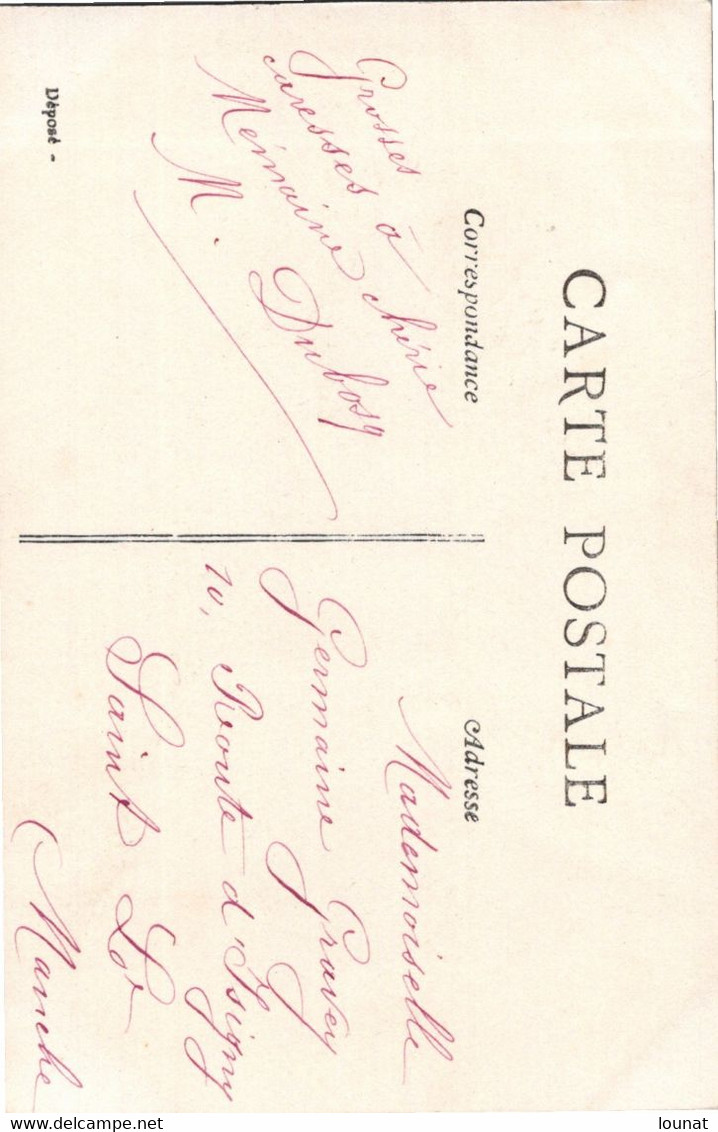 CARTE POSTALE
Correspondance
Grosses
caresses à chérie
Mémaine
M. Dubosq
Déposé -
Adresse
Mademoiselle
Germaine Gravey
10, Route d'Isigny
Saint Lô
(Manche
www.delcampe.net
lounat